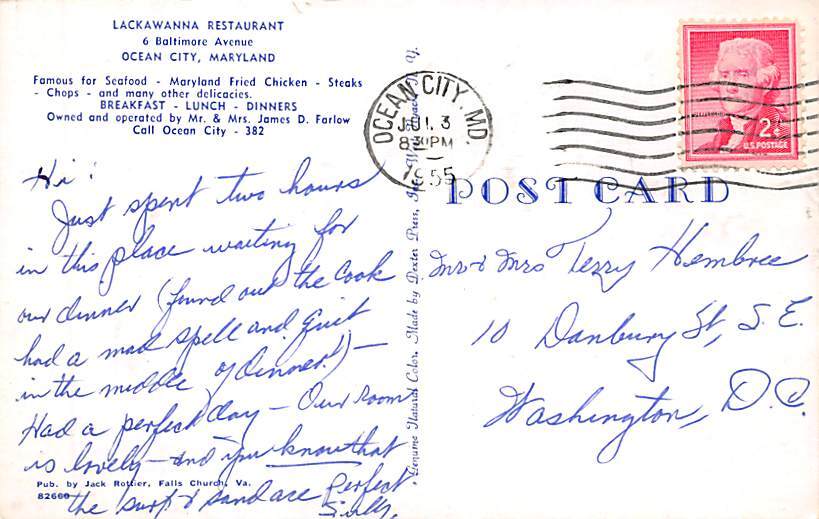 LACKAWANNA RESTAURANT
6 Baltimore Avenue
OCEAN CITY, MARYLAND
Famous for Seafood - Maryland Fried Chicken - Steaks
- Chops - and many other delicacies.
BREAKFAST - LUNCH - DINNERS
Owned and operated by Mr. & Mrs. James D. Farlow
Call Ocean City - 382
Hi!
Just spent two hours
in this place waiting for
our dinner (found out the cook
had a mad spell and quit
in the middle of dinner!) —
Had a perfect day — Our room
is lovely — and you know that
the surf & sand are perfect
Sully.
Pub. by Jack Rottier, Falls Church, Va.
82660
Genuine Natural Color. Made by Dexter Press, Inc. Y.
OCEAN CITY, MD.
JUL 3
8 PM
1955
2¢
U.S. POSTAGE
POST CARD
Mr & Mrs Terry Hembree
10 Danbury St, S.E.
Washington, D.C.